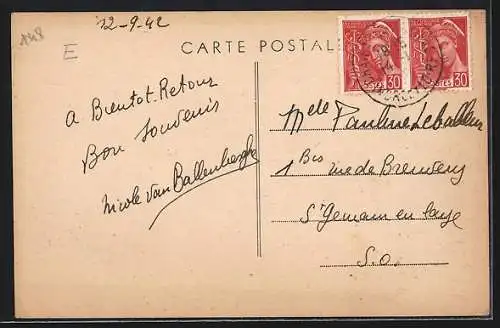 12-9-42
148
E
CARTE POSTALE
30
30
A Bientot-Retour
Bon Souvenir
Nicole Van Ballenberghe
Melle Pauline
1 Bis rue de
St Germain en Laye
S.O.